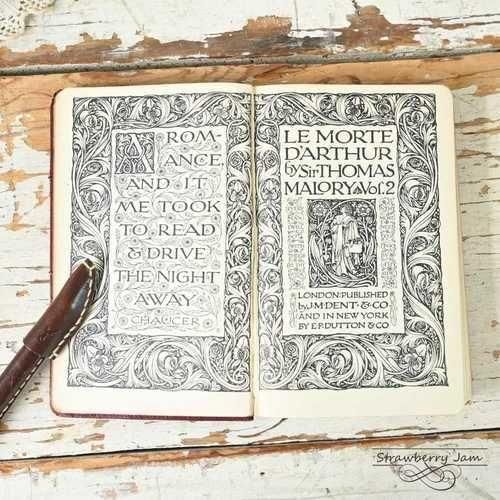 A ROM-
ANCE
AND IT
ME TOOK
TO READ
& DRIVE
THE NIGHT
AWAY
CHAUCER
LE MORTE
D'ARTHUR
by Sir THOMAS
MALORY Vol. 2
LONDON: PUBLISHED
by J.M. DENT & CO
AND IN NEW YORK
BY E.P. DUTTON & CO
Strawberry Jam